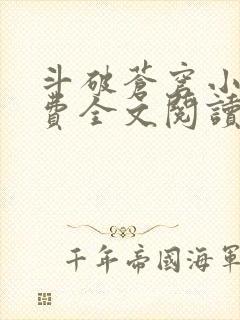 斗破蒼穹小
費全文閱讀
千年帝國海軍